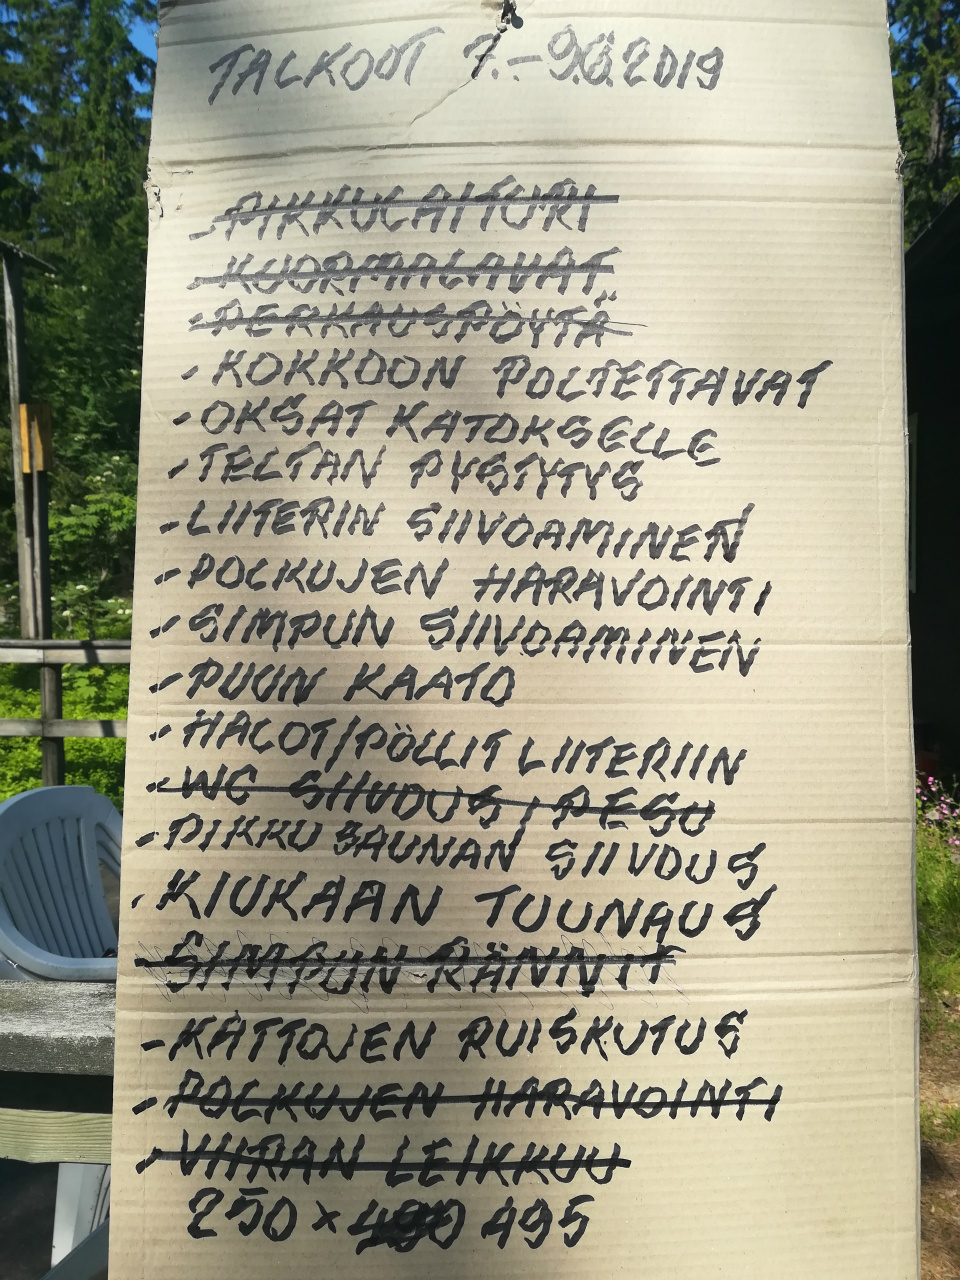 TALKOOT 7.-9.6.2019
- PIKKULAITURI
- KUORMALAVAT
- PERKAUSPÖYTÄ
- KOKKOON POLTETTAVAT
- OKSAT KATOKSELLE
- TELTAN PYSTYTYS
- LIITERIN SIIVOAMINEN
- POLKUJEN HARAVOINTI
- SIMPUN SIIVOAMINEN
- PUUN KAATO
- HALOT/PÖLLIT LIITERIIN
- WC SIIVOUS, PESU
- PIKKU SAUNAN SIIVOUS
- KIUKAAN TUUNAUS
- SIMPUN RÄNNIT
- KATTOJEN RUISKUTUS
- POLKUJEN HARAVOINTI
- VIIRAN LEIKKUU
250 x 495